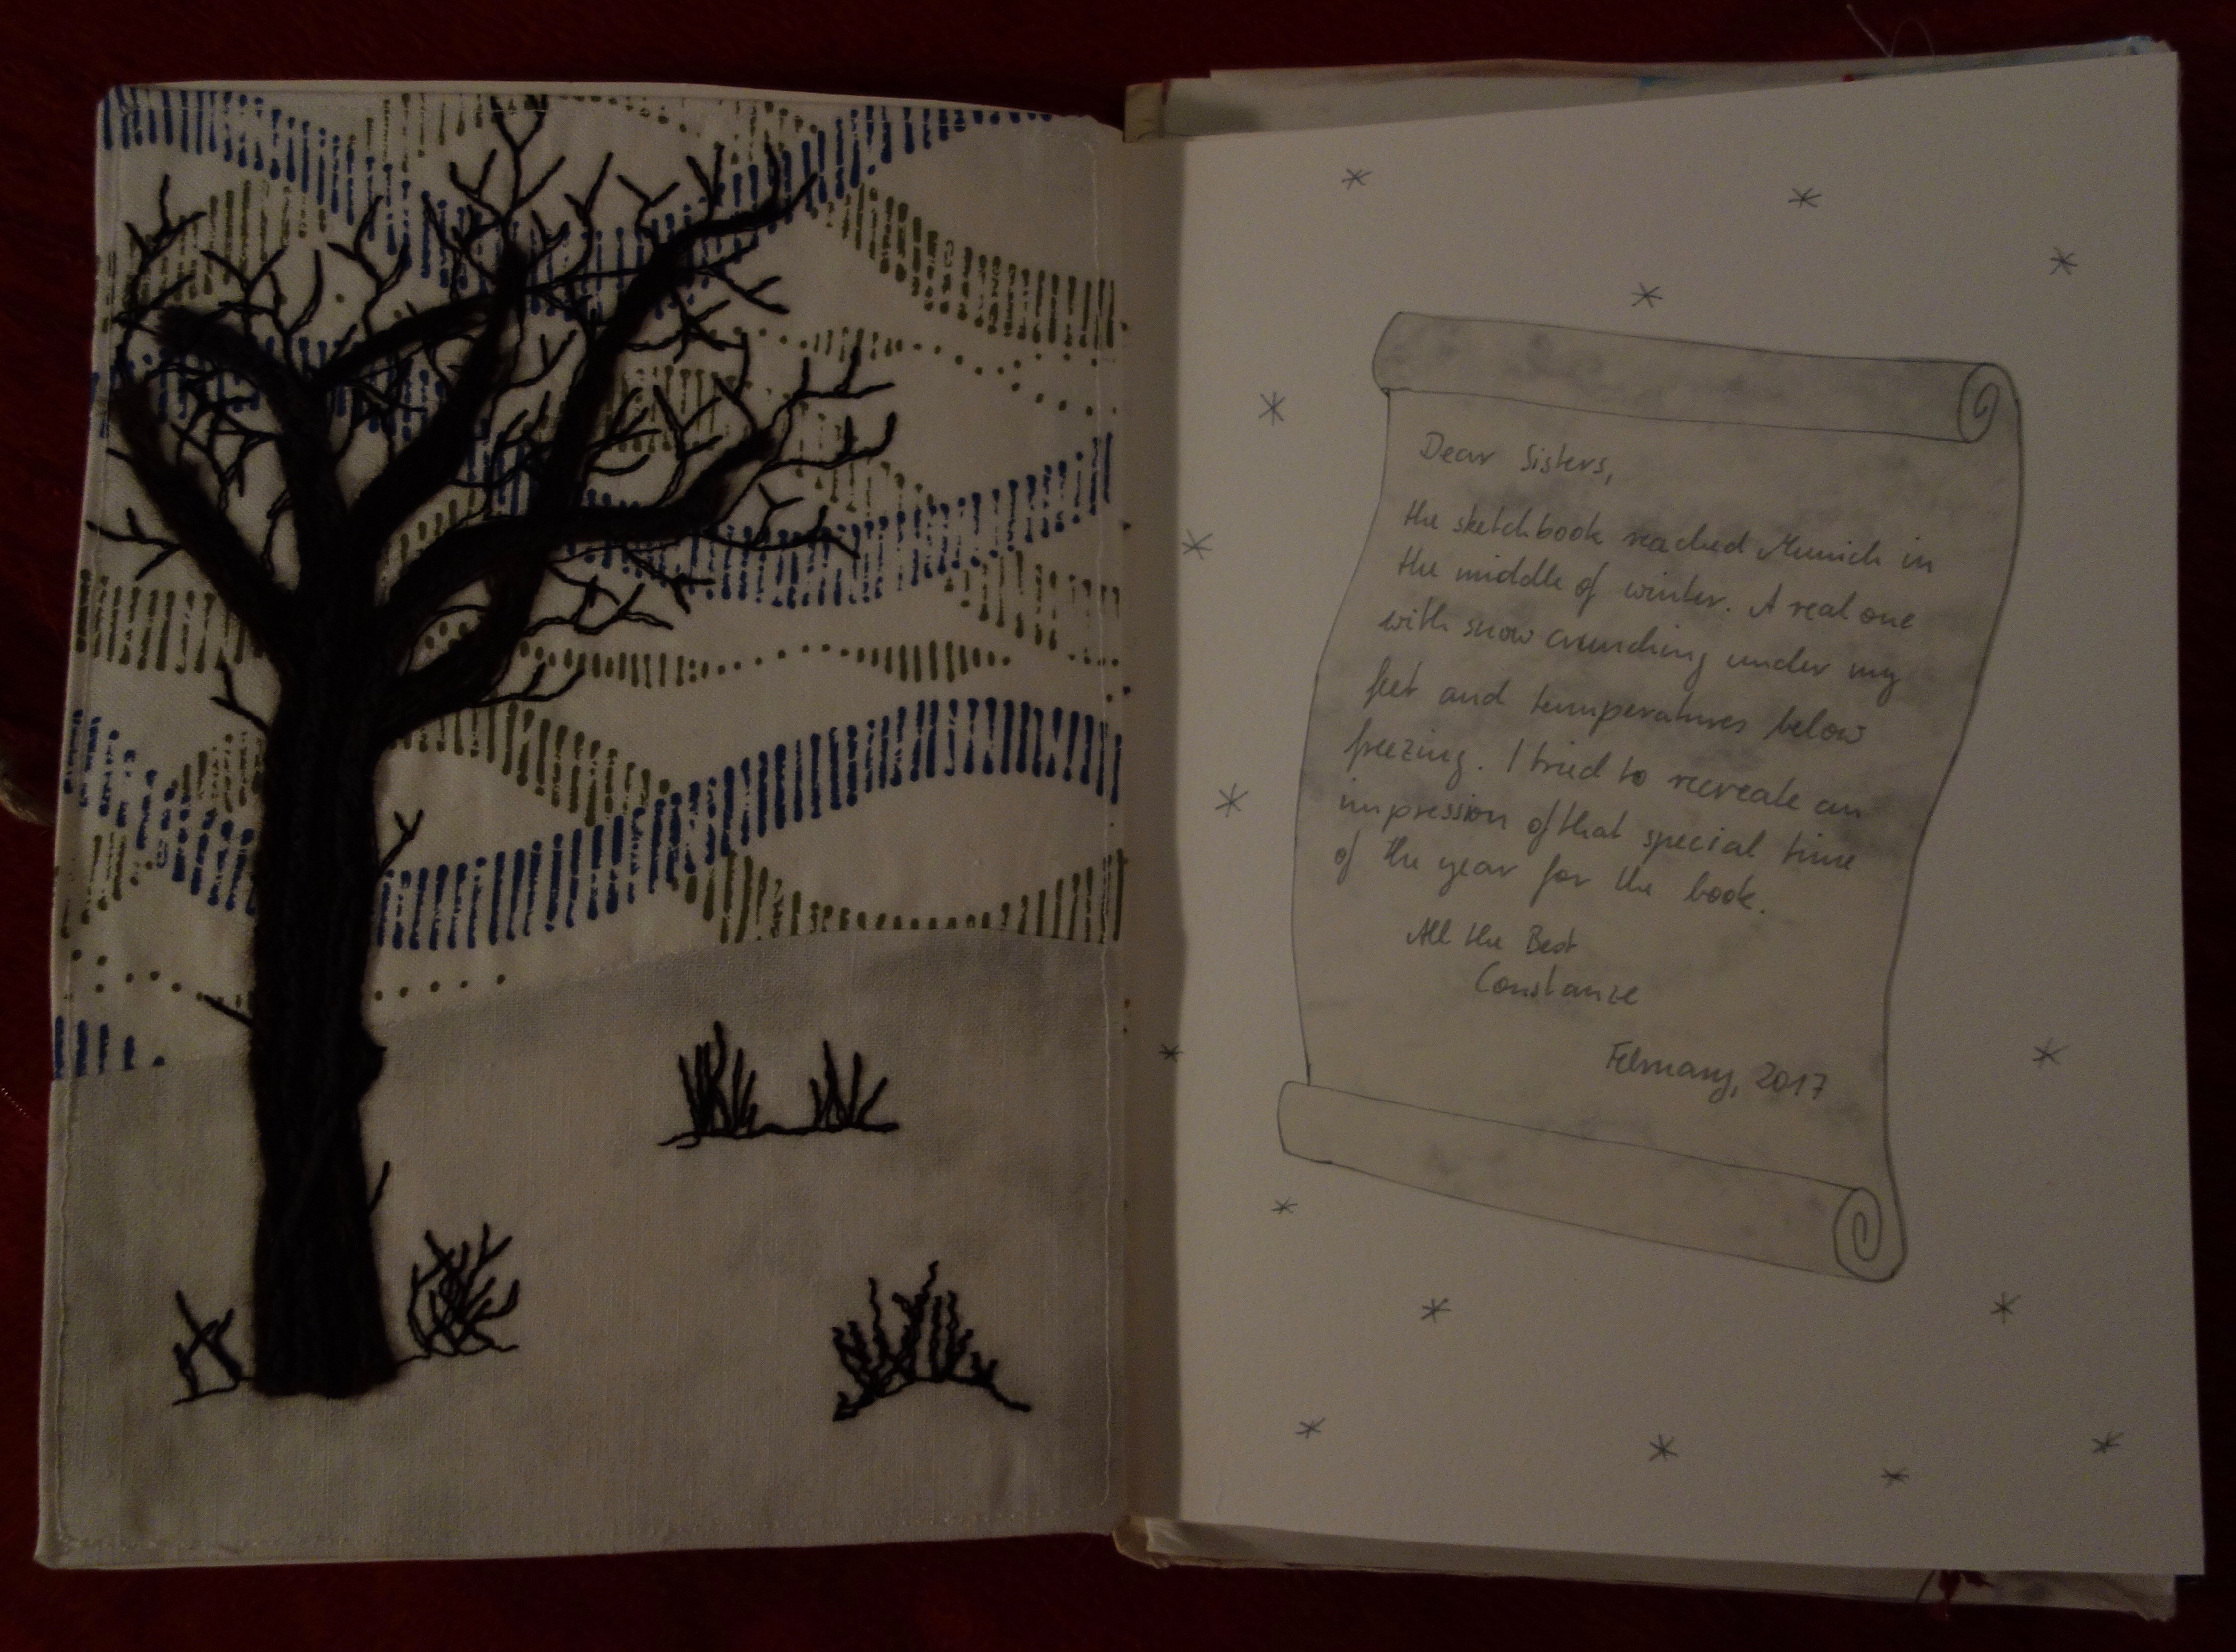 Dear Sisters,
the sketchbook reached Munich in
the middle of winter. A real one
with snow crunching under my
feet and temperatures below
freezing. I tried to recreate an
impression of that special time
of the year for the book.
All the Best
Constanze
February, 2017